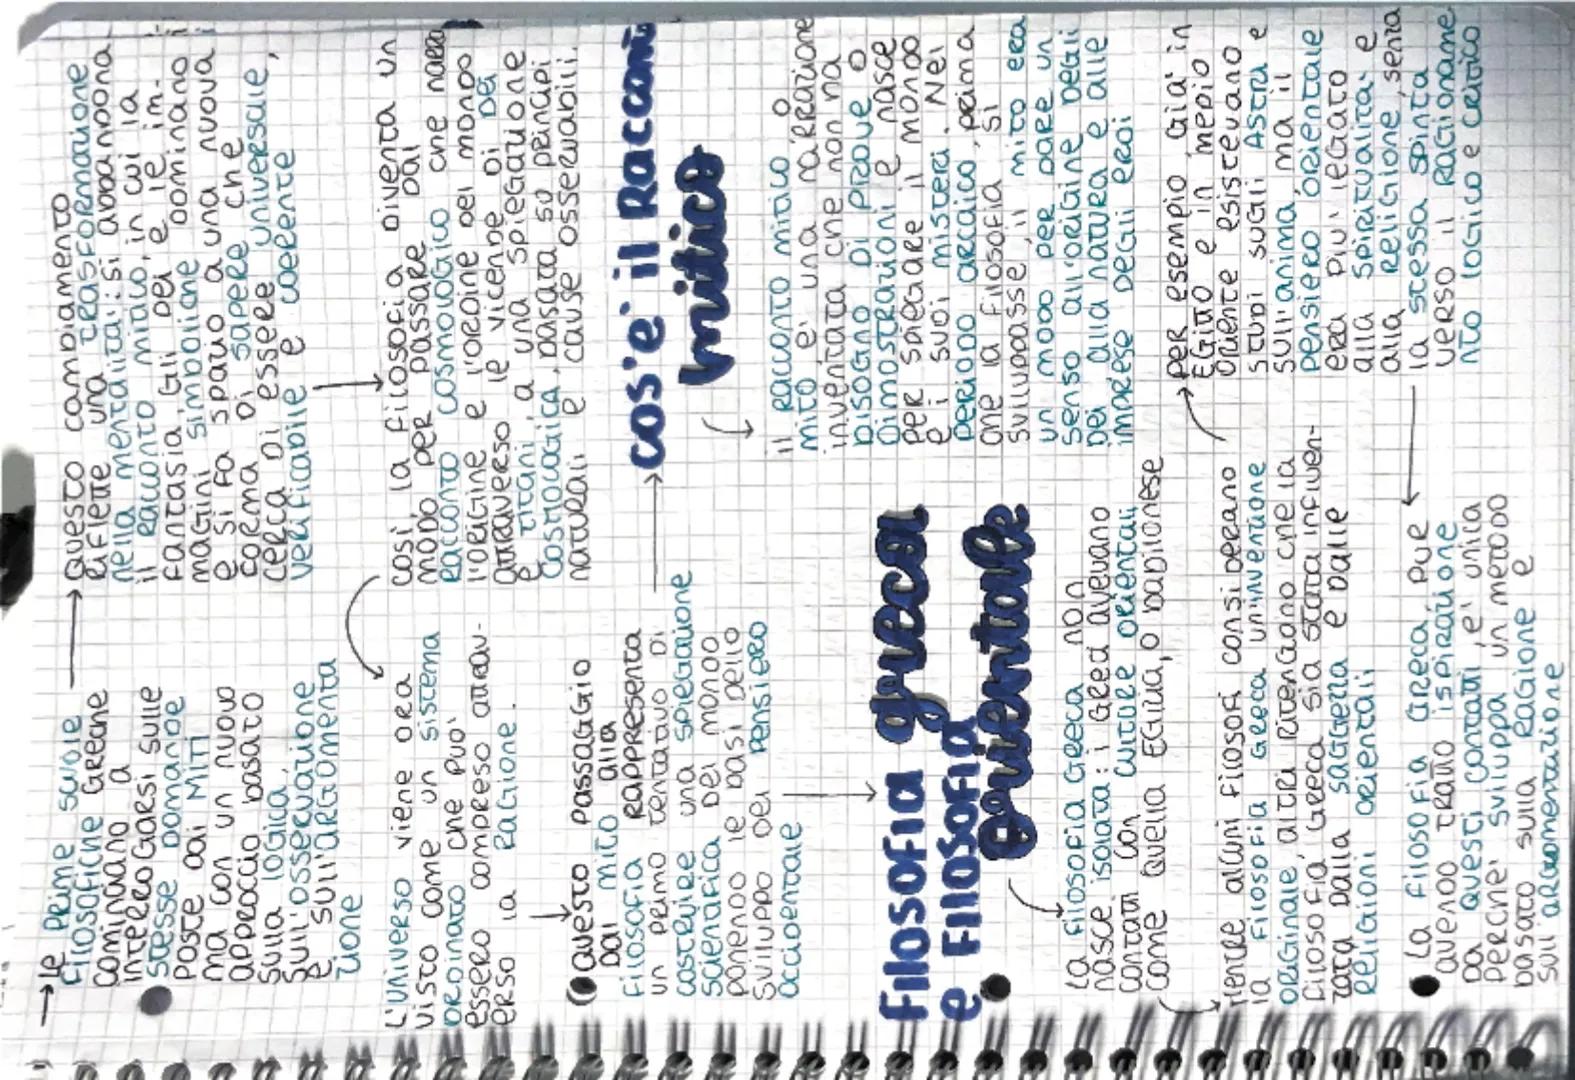 → Le prime scuole
filosofiche Greche
cominciano a
interrogarsi sulle
stesse domande
poste dai MITI
ma con un nuovo
approccio basato
sulla logica,
sull'osservazione
e sull'argomenta
zione
→ questo cambiamento
riflette una trasformazione
nella mentalità: si abbandona
il racconto mitico, in cui la
fantasia, gli Dei e le im-
magini simboliche dominano
e si fa spazio a una nuova
forma di sapere che
cerca di essere universale,
verificabile e coerente
così la filosofia diventa un
modo per passare dal
racconto cosmologico che narra
l'origine e l'ordine del mondo
attraverso le vicende di Dei
e titani, a una spiegazione
cosmologica, basata su principi
naturali e cause osservabili.
L'universo viene ora
visto come un sistema
ordinato che può
essero compreso attrav-
erso la ragione.
questo passaggio
dal mito alla
filosofia rappresenta
un primo tentativo di
costruire una spiegazione
scientifica del mondo
ponendo le basi dello
sviluppo del pensiero
occidentale
cos'è il Racconto
mitico
il racconto mitico o
mito è una narrazione
inventata che non ha
bisogno di prove o
dimostrazioni e nasce
per spiegare il mondo
e i suoi misteri. Nel
periodo arcaico, prima
che la filosofia si
sviluppasse, il mito era
un modo per dare un
senso all'origine degli
Dei alla natura e alle
imprese degli eroi
Filosofia greca
e Filosofia
Orientale
La filosofia Greca non
nasce isolata: i Greci avevano
contatti con culture orientali
come quella Egizia, o babilonese
mentre alcuni filosofi considerano
la filosofia Greca un'invenzione
originale, altri ritengono che la
filosofia Greca sia stata influen-
zata dalla saggezza e dalle
religioni orientali
per esempio, già in
Egitto e in medio
oriente esistevano
studi sugli Astri e
sull'anima ma il
pensiero orientale
era più legato
alla spiritualità e
alla religione, senza
la stessa spinta
verso il ragioname
nto logico e critico
La filosofia Greca, pur
avendo tratto ispirazione
da questi contatti, è unica
perché sviluppa un metodo
basato sulla ragione e
sull'argomentazione